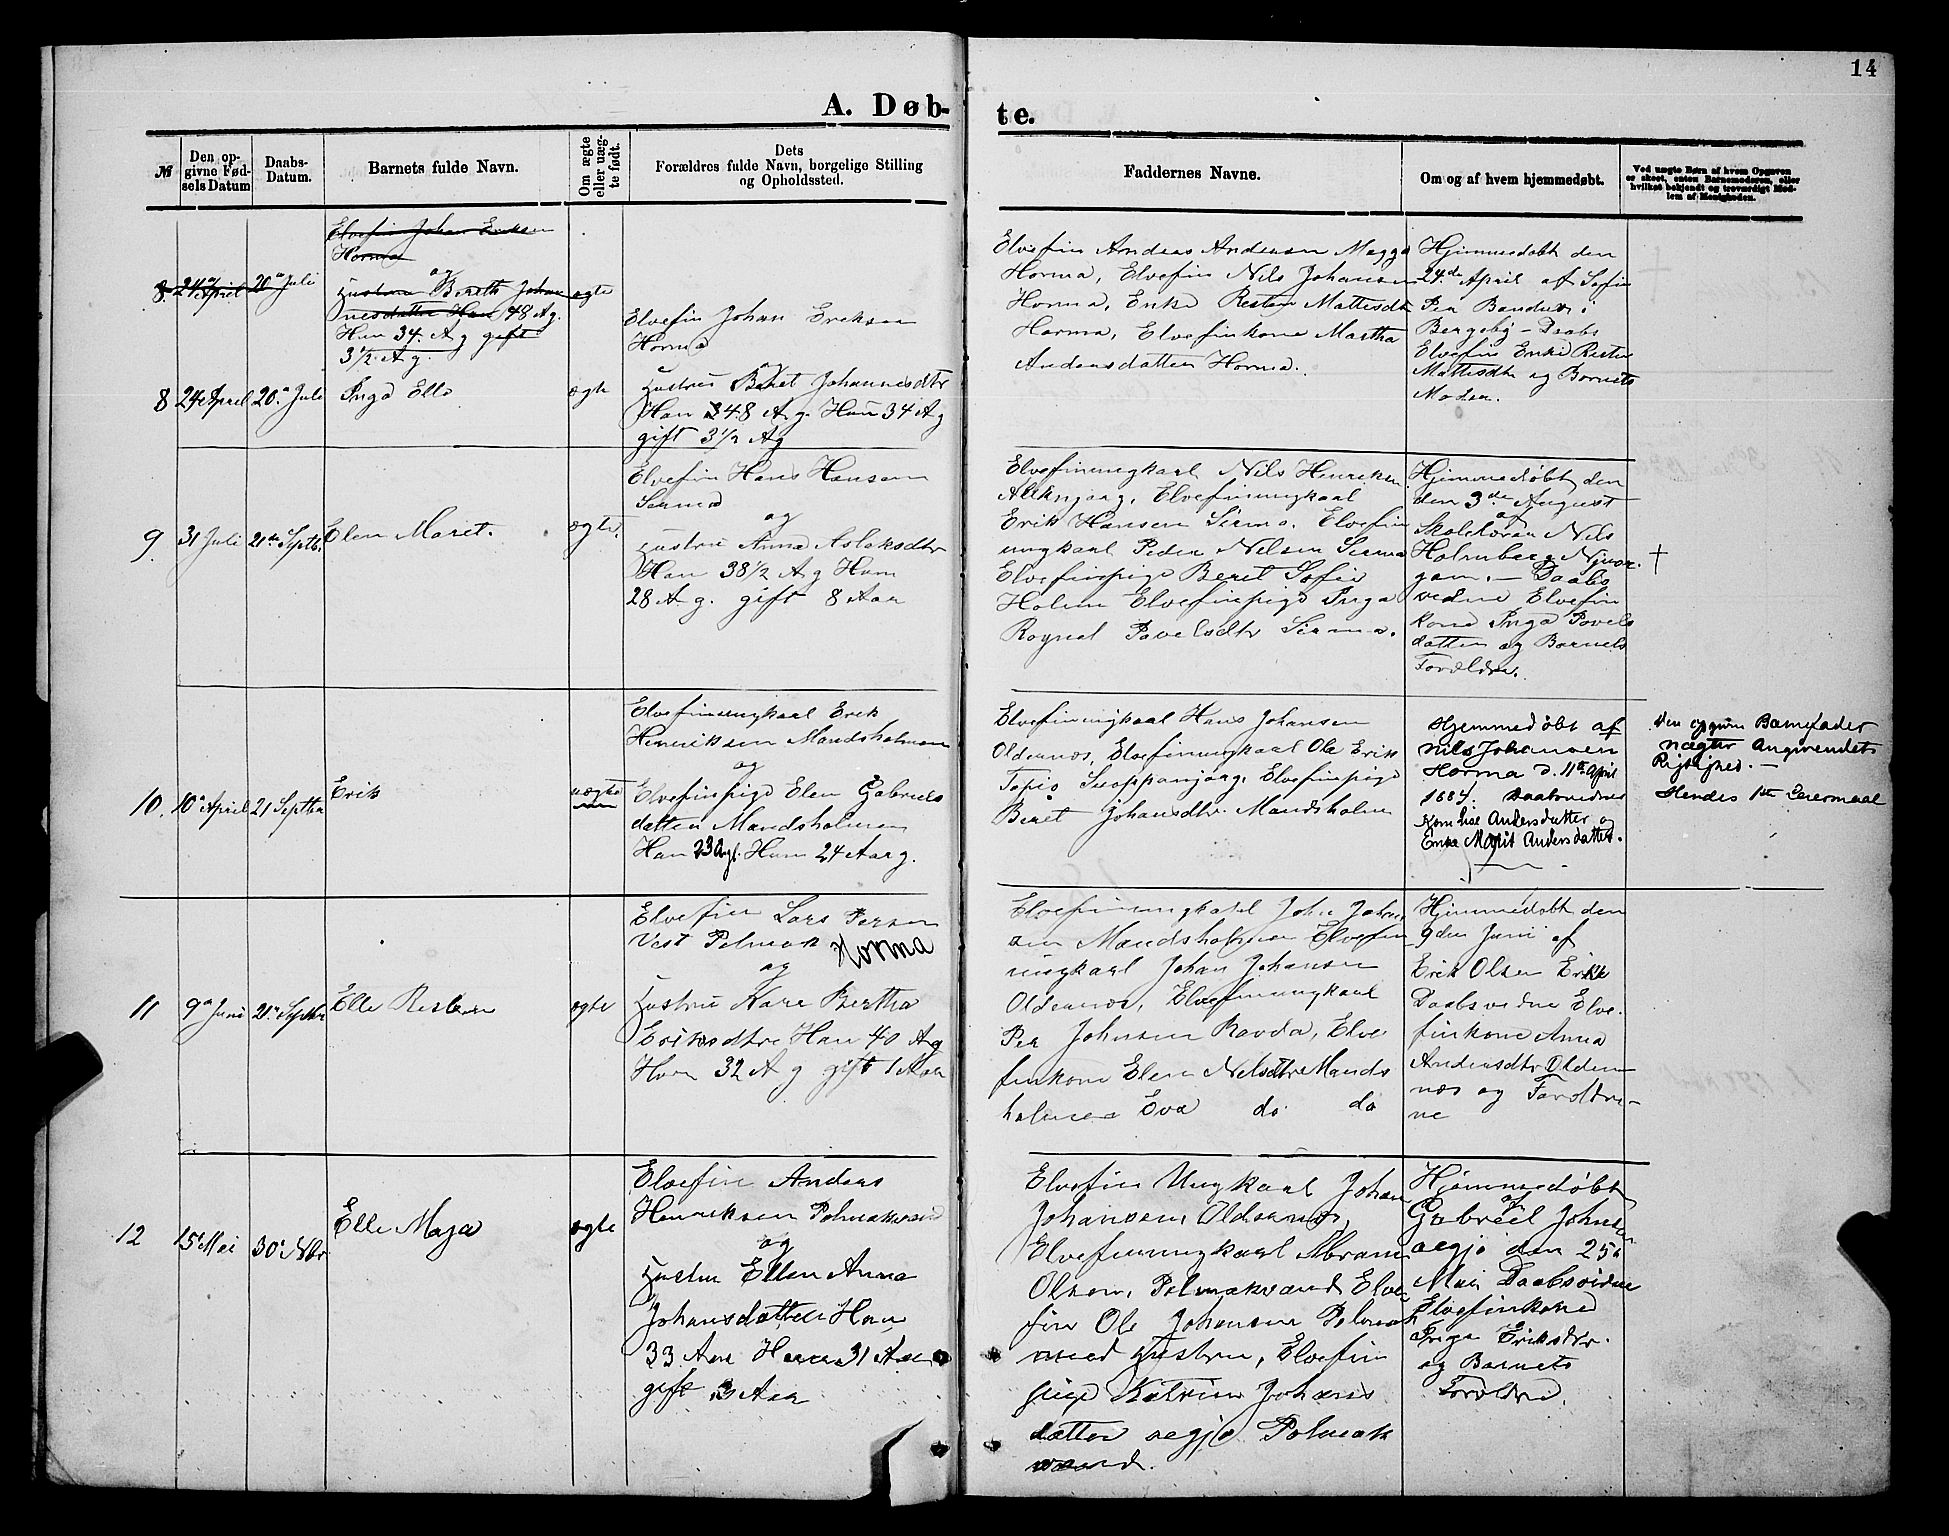 14
A. Døb-
te.
№
Den op-
givne Fød-
sels Datum
Daabs-
Datum.
Barnets fulde Navn.
Om ægte
eller uæg-
te født.
Dets
Forældres fulde Navn, borgelige Stilling
og Opholdssted.
Faddernes Navne.
Om og af hvem hjemmedøbt.
Ved uægte Børn af hvem Opgaven
er skeet, enten Barnemoderen, eller
hvilket bekjendt og troværdigt Med-
lem af Menigheden.
8. 24 April 20 Juli
Elvefin Johan Eriksen
Horma
og
Hustru Bereth Johan
nesdatter Han 48 Ag.
Hun 34 Ag gift
3½ Ag.
ægte
8 24 April 20 Juli
Inga Elle
ægte
Elvefin Johan Eriksen
Horma
og
Hustru Beret Johannesdtr
Han 48 Ag. Hun 34 Ag
gift 3½ Ag
Elvefin Andras Andersen Magga
Horma, Elvefin Nils Johansen
Horma, Enke Risten Mattisdtr
Horma, Elvefinkone Martha
Andersdatter Horma.
Hjemmedøbt den
24de April af Sofie
Per
Bergeby – Daabs
Elvefin Enke Risten
Mattisdtr og Barnets
Moder.
9. 31 Juli 21de Septb.
Elen Maret.
ægte.
Elvefin Hans Hansen
Sirma
og
Hustru Anna Aslaksdtr
Han 38½ Ag Hun
28 Ag. gift 8 Aar
Elvefinungkarl Nils Henriksen
Aleknjarg, Elvefinungkarl
Erik Hansen Sirma, Elvefin
ungkarl Peder Nilsen Sirma
Elvefinpige Beret Sofie
Holm Elvefinpige Inga
Ragnel Pavelsdtr Sirma.
Hjemmedøbt den
den 3de August
af
Skolelærer Nils
Holmberg Njuor-
gam. – Daabs
vidne Elvefin
kone Inga Povels
datter og Barnets
Forældre.
†
10. 10 April 21 Septbr
Erik
uægte
Elvefinungkarl Erik
Henriksen Mandsholmen
og
Elvefinpige Elen Gabriels
datter Mandsholmen
Han 23 Agl. Hun 24 Aar g.
Elvefinungkarl Hans Johansen
Oldernæs, Elvefinungkarl Ole Erik
Topio Suoppanjarg, Elvefinpige
Beret Johansdtr Mandsholm
Hjemmedøbt af
Nils Johansen
Horma d. 11te April
1884. Daabsvidner
Kone Lise Andersdatter og
Enke Marit Andersdatter.
Den opgivne Barnefader
nægter Angivendets
Rigtighed. –
Hendes 1ste Leiermaal
11 9 Juni 21 Septbr
Elle Risten
ægte
Elvefin Lars Persen
Vest Polmak Horma
og
Hustru Kare Bertha
Eriksdtr Han 40 Ag
Hun 32 Ag gift 1 Aar
Elvefinungkarl John Johan
sen Mandsholmen Elvefin
ungkarl Johan Johansen
Oldernæs, Elvefinungkarl
Per Johnsen Ravda, Elve
finkone Elen Nilsdtr Mands
holmen Eva do do
Hjemmedøbt den
9den Juni af
Erik Olsen Erke
Daabsvidne Elve-
finkone Anna
Andersdtr Older
næs og Forældre-
ne
12 15 Mai 30 Nbr
Elle Maja
ægte
Elvefin Anders
Henriksen Polmakvand
og
Hustru Ellen Anna
Johansdatter Han
33 Aar Hun 31 Aar
gift 3 Aar
Elvefin Ungkarl Johan
Johansen Oldernæs,
Elvefinungkarl Abram
Olsen, Polmakvand Elve
fin Ole Johansen Polmak
med Hustru, Elvefin
pige Katrine Johans
datter aegjo Polmak
vand.
Hjemmedøbt
af
Gabriel Johnsen
aegjo den 25
Mai Daabsvidne
Elvefinkone
Inga Eriksdtr.
og Barnets
Forældre.